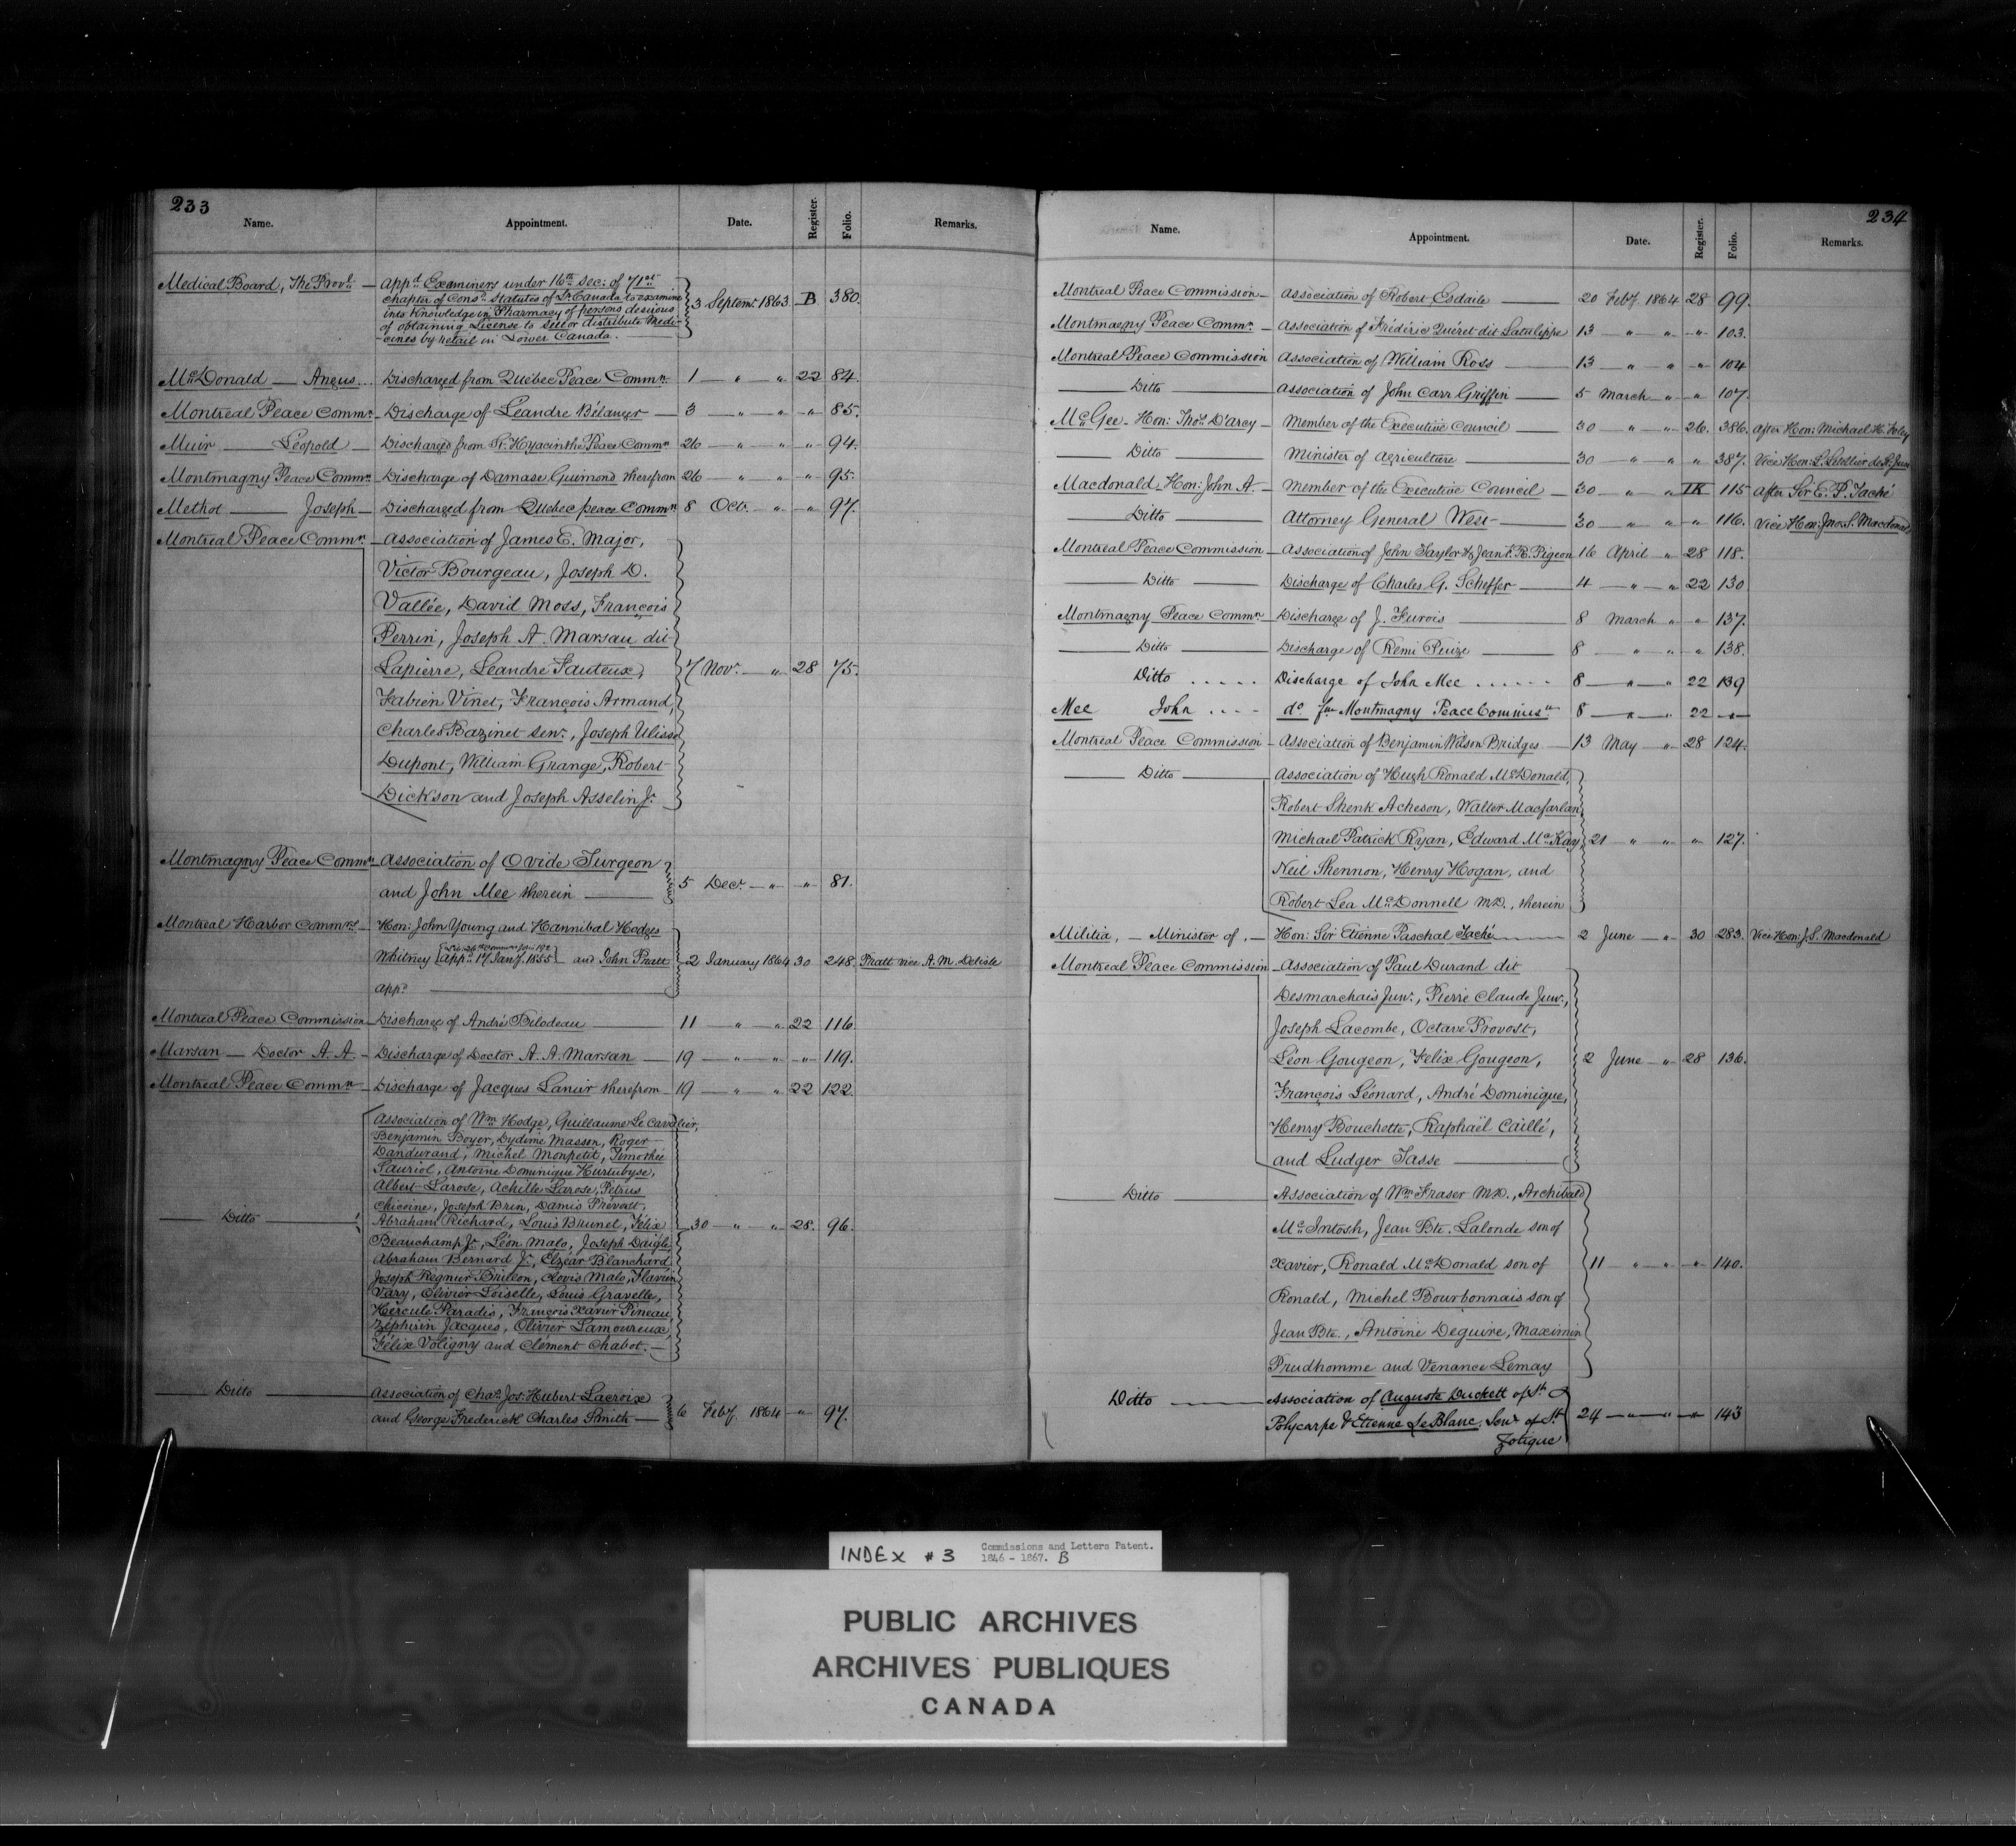 233
Name. Appointment. Date. Register. Folio. Remarks.
Medical Board, The Prov.l — App.d Examiners under 16th sec: of 71st
chapter of Cons.d Statutes of L. Canada to examine
into knowledge in Pharmacy of persons desirous
of obtaining License to sell or distribute Medi-
-cines by retail in Lower Canada. — 3 Septemr. 1863. B 380.
McDonald — Angus... Discharged from Québec Peace Commn. 1 — " — " 22 84.
Montreal Peace Commn. — Discharge of Léandre Bélanger — 3 — " — " — " 85.
Muir — Léopold — Discharged from St. Hyacinthe Peace Commn 26 — " — " — " 94.
Montmagny Peace Commn Discharge of Damase Guimond therefrom 26 — " — " — " 95.
Methot — Joseph — Discharged from Quebec peace Commn 8 Oct. — " — " 97.
Montreal Peace Commn. — Association of James E. Major,
Victor Bourgeau, Joseph D.
Vallée, David Moss, François
Perrin, Joseph A. Marsau dit
Lapierre, Leandre Fauteux, 7 Novr. — " 28 75.
Fabien Vinet, François Armand,
Charles Bazinet senr., Joseph Ulisse
Dupont, William Grange, Robert
Dickson and Joseph Asselin Jr.
Montmagny Peace Commn — Association of Ovide Turgeon
and John Mee therein — 5 Decr. — " — " 81.
Montreal Harbor Commrs — Hon: John Young and Hannibal Hodges
Whitney App.d 17 Jany. 1855 and John Pratt 2 January 1864 30 248. Pratt vice A. M. Delisle
app.d —
Montreal Peace Commission — Discharge of André Bilodeau — 11 — " — " 22 116.
Marsan — Doctor A. A. — Discharge of Doctor A. A. Marsan — 19 — " — " — " 119.
Montreal Peace Commn — Discharge of Jacques Lanuir therefrom — 19 — " — " 22 122.
Association of Wm. Hodge, Guillaume Le Cavalier,
Benjamin Boyer, Dydime Masson, Roger
Dandurand, Michel Monpetit, Timothée
Lauriol, Antoine Dominique Hurtubyse,
Albert Larose, Achille Larose, Petrus
Chicoine, Joseph Brin, Damis Prévost,
— Ditto — Abraham Richard, Louis Brunel, Felix 30 — " — " 28. 96.
Beauchamp Jr., Léon Malo, Joseph Daigle,
Abraham Bernard Jr., Elzéar Blanchard
Joseph Regnier Brillon, Clovis Malo, Flavien
Vary, Olivier Loiselle, Louis Gravelle,
Hercule Paradis, François Xavier Pineau,
Zéphirin Jacques, Olivier Lamoureux,
Félix Voligny and Clément Chabot. —
— Ditto — Association of Chas. Jos: Hubert Lacroix
and George Frederick Charles Smith — 6 Feby. 1864 — " 97.
234
Name. Appointment. Date. Register. Folio. Remarks.
Montreal Peace Commission — Association of Robert Esdaile — 20 Feby. 1864 28 99.
Montmagny Peace Commn. — Association of Frédéric Quéret dit Latulippe 13 — " — " — " 103.
Montreal Peace Commission Association of William Ross — 13 — " — " — " 104
— Ditto — Association of John Carr Griffin — 5 March — " — " 107.
McGee — Hon: Thos. D'arcy — Member of the Executive Council — 30 — " — " 26. 386. After Hon: Michael H. Foley
— Ditto — Minister of Agriculture — 30 — " — " — " 387. Vice Hon: L. Letellier de St. Just
Macdonald — Hon: John A. — Member of the Executive Council — 30 — " — " IK 115 After Sir E. P. Taché
— Ditto — Attorney General West — 30 — " — " — " 116. Vice Hon: Jno. S. Macdonald
Montreal Peace Commission — Association of John Taylor & Jean F. R. Pigeon 16 April — " 28 118.
— Ditto — Discharge of Charles G. Scheffer — 4 — " — " 22 130
Montmagny Peace Commn — Discharge of J. Furois — 8 March — " — " 137.
— Ditto — Discharge of Remi Puize — 8 — " — " — " 138.
Ditto ..... Discharge of John Mee ...... 8 — " — " 22 139
Mee John .... do. fm Montmagny Peace Commissn. 8 — " — 22 — " —
Montreal Peace Commission — Association of Benjamin Wilson Bridges — 13 May — " 28 124.
— Ditto — Association of Hugh Ronald McDonald,
Robert Shenk Acheson, Walter Macfarlan,
Michael Patrick Ryan, Edward McKay 21 — " — " — " 127.
Neil Shennon, Henry Hogan, and
Robert Lea McDonnell M.D., therein
Militia, — Minister of, — Hon: Sir Etienne Paschal Taché — 2 June — " 30 283. Vice Hon: J. S. Macdonald
Montreal Peace Commission — Association of Paul Durand dit
Desmarchais Junr., Pierre Claude Junr.,
Joseph Lacombe, Octave Provost,
Léon Gougeon, Felix Gougeon, 2 June — " 28 136.
François Léonard, André Dominique,
Henry Bouchette, Raphaël Caillé,
and Ludger Tasse —
— Ditto — Association of Wm. Fraser M.D., Archibald
McIntosh, Jean Bte. Lalonde son of
Xavier, Ronald McDonald son of 11 — " — " — " 140.
Ronald, Michel Bourbonnais son of
Jean Bte., Antoine Deguire, Maximin
Prudhomme and Venance Lemay
Ditto — Association of Auguste Duckett of St.
Polycarpe & Etienne LeBlanc, Senr. of St 24 — " — " — " 143
Zotique
INDEX # 3 Commissions and Letters Patent.
1846 - 1867. B
PUBLIC ARCHIVES
ARCHIVES PUBLIQUES
CANADA